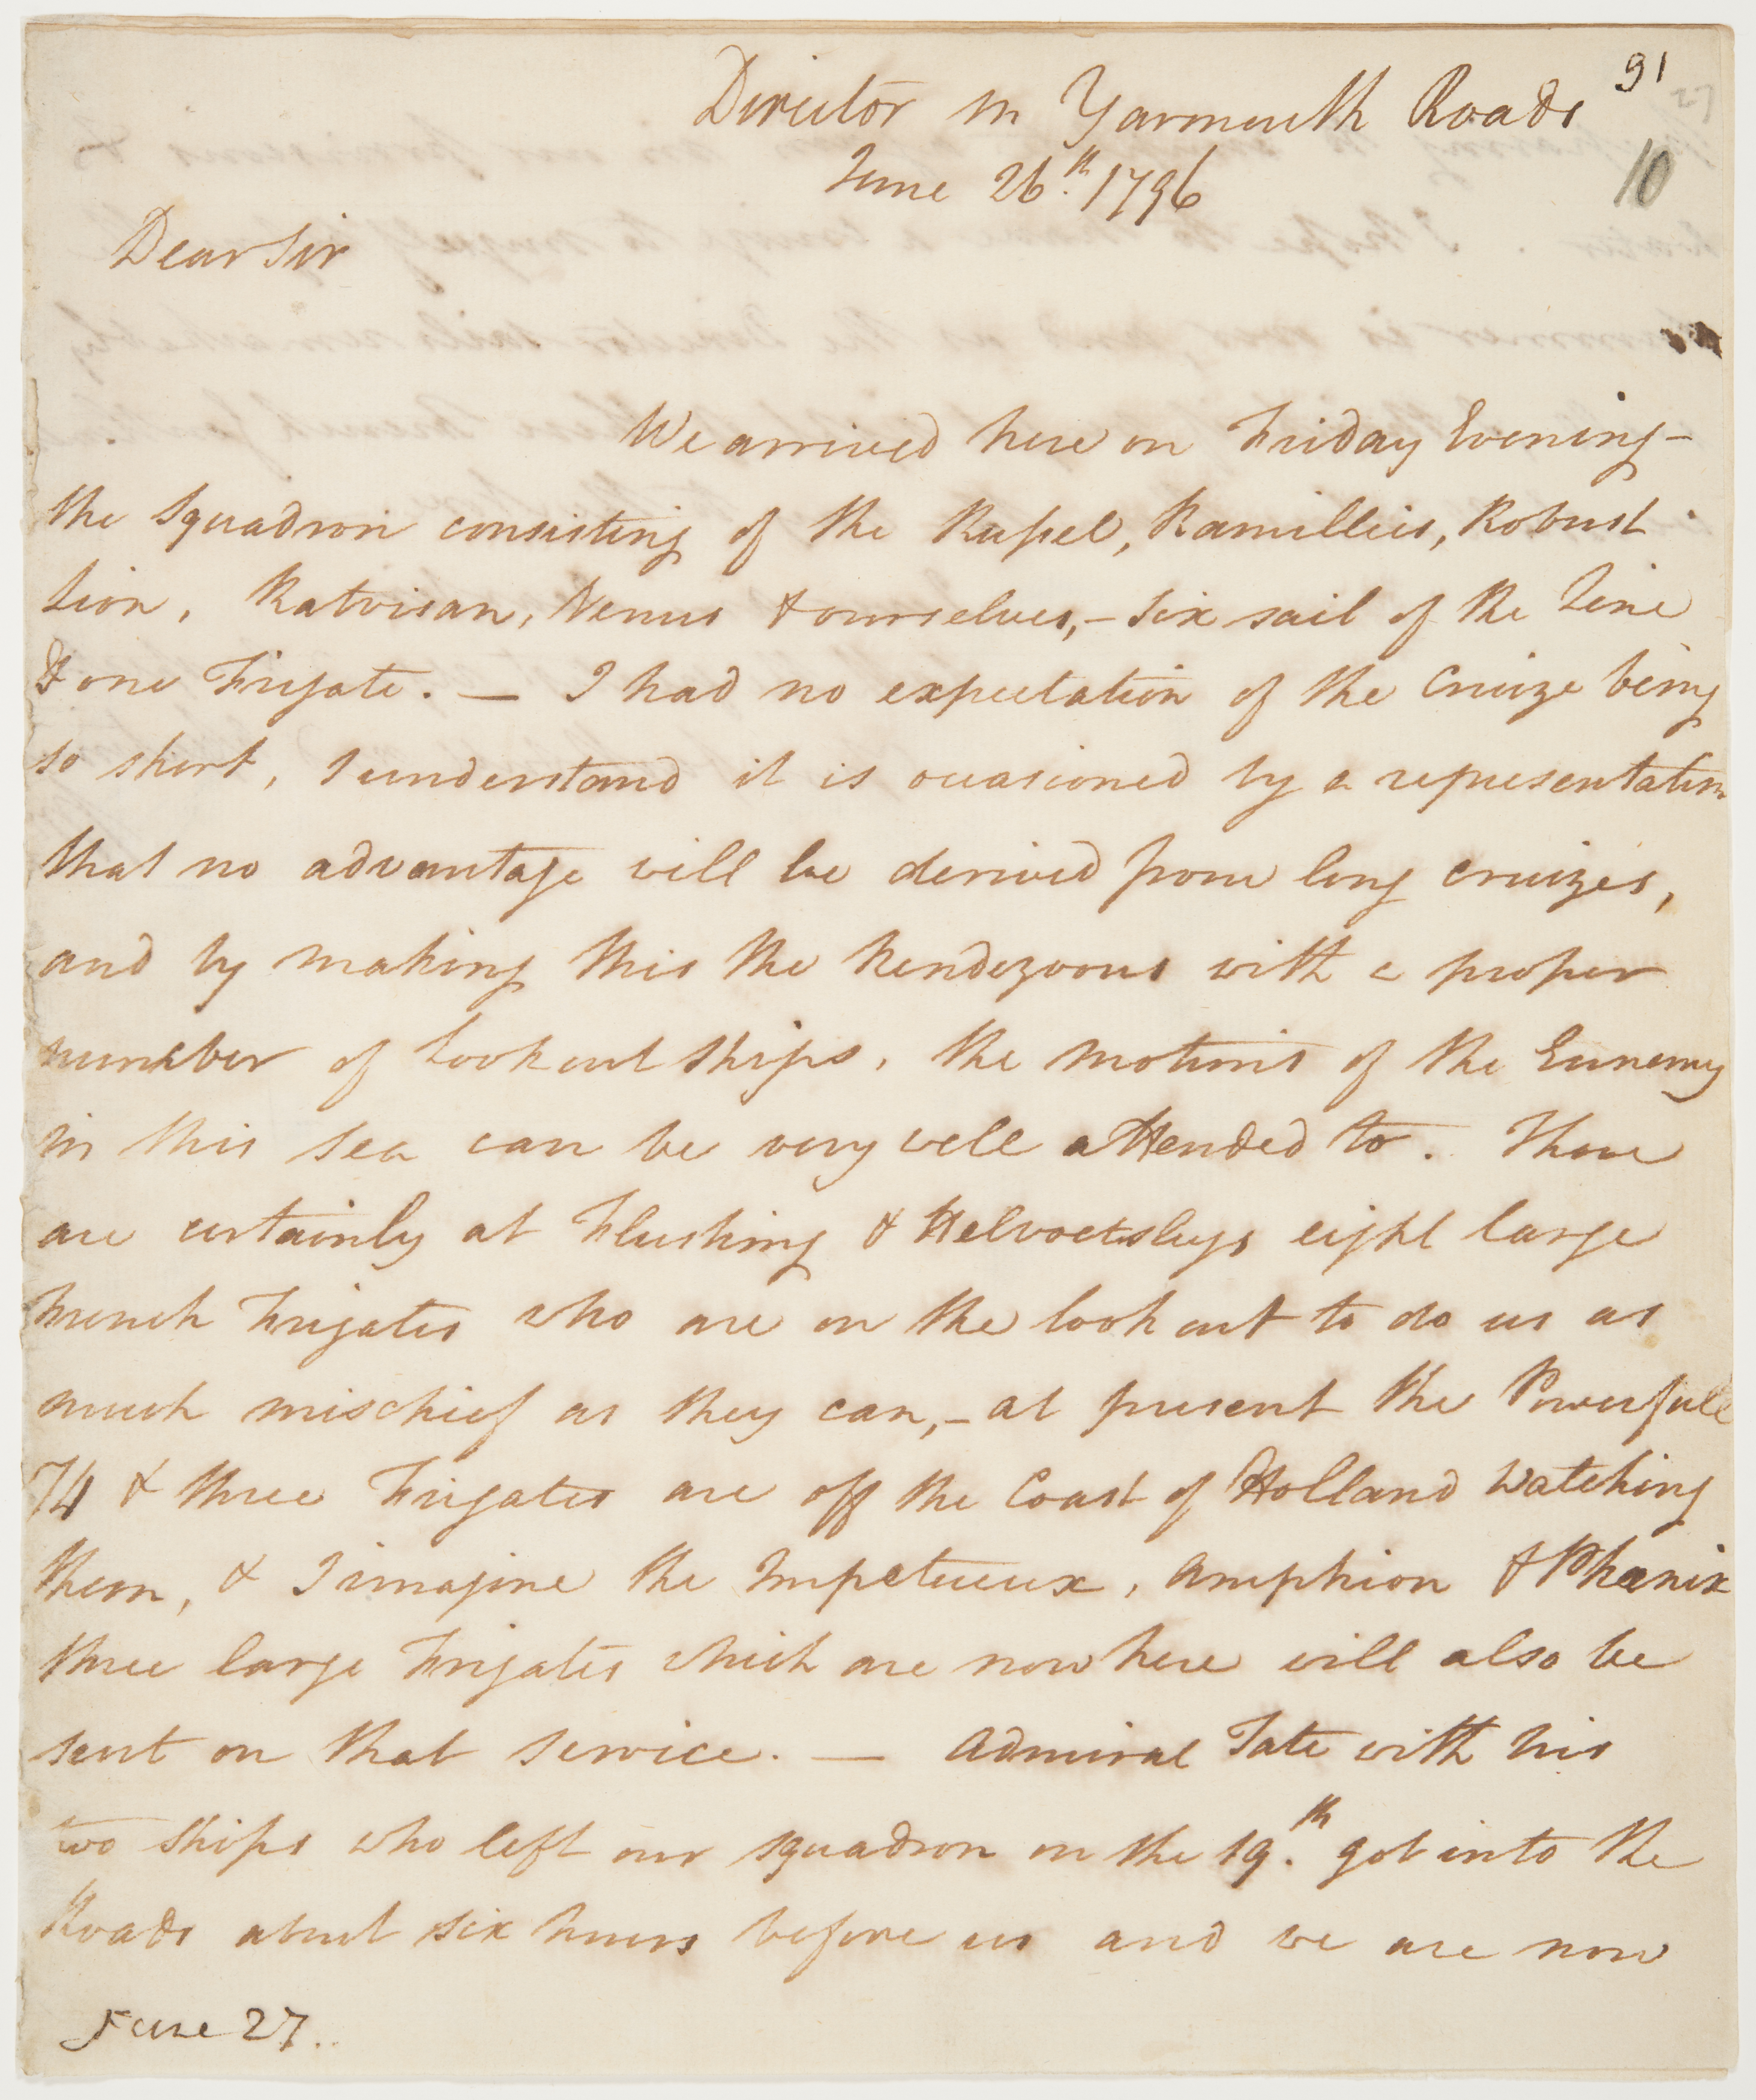 91
27
Director in Yarmouth Roads
10
June 26th. 1796
Dear Sir
We arrived here on Friday Evening -
the Squadron consisting of the Russel, Ramillies, Robust
Lion, Ratvisan, Venus & ourselves, - six sail of the Line
& one Frigate. — I had no expectation of the Cruize being
so short, I understand it is occasioned by a representation
that no advantage will be derived from long cruizes,
and by making this the Rendezvous with a proper
number of Lookout Ships, the motions of the Ennemy
in this Sea can be very well attended to. There
are certainly at Flushing & Helvoetsluys eight large
French Frigates who are on the look out to do us as
much mischief as they can, - at present the Powerfull
74 & three Frigates are off the Coast of Holland Watching
them, & I imagine the Impetueux, Amphion & Phœnix
three large Frigates which are now here will also be
sent on that service. — Admiral Tate with his
two Ships who left our squadron on the 19th. got into the
Roads about six hours before us and we are now
June 27.